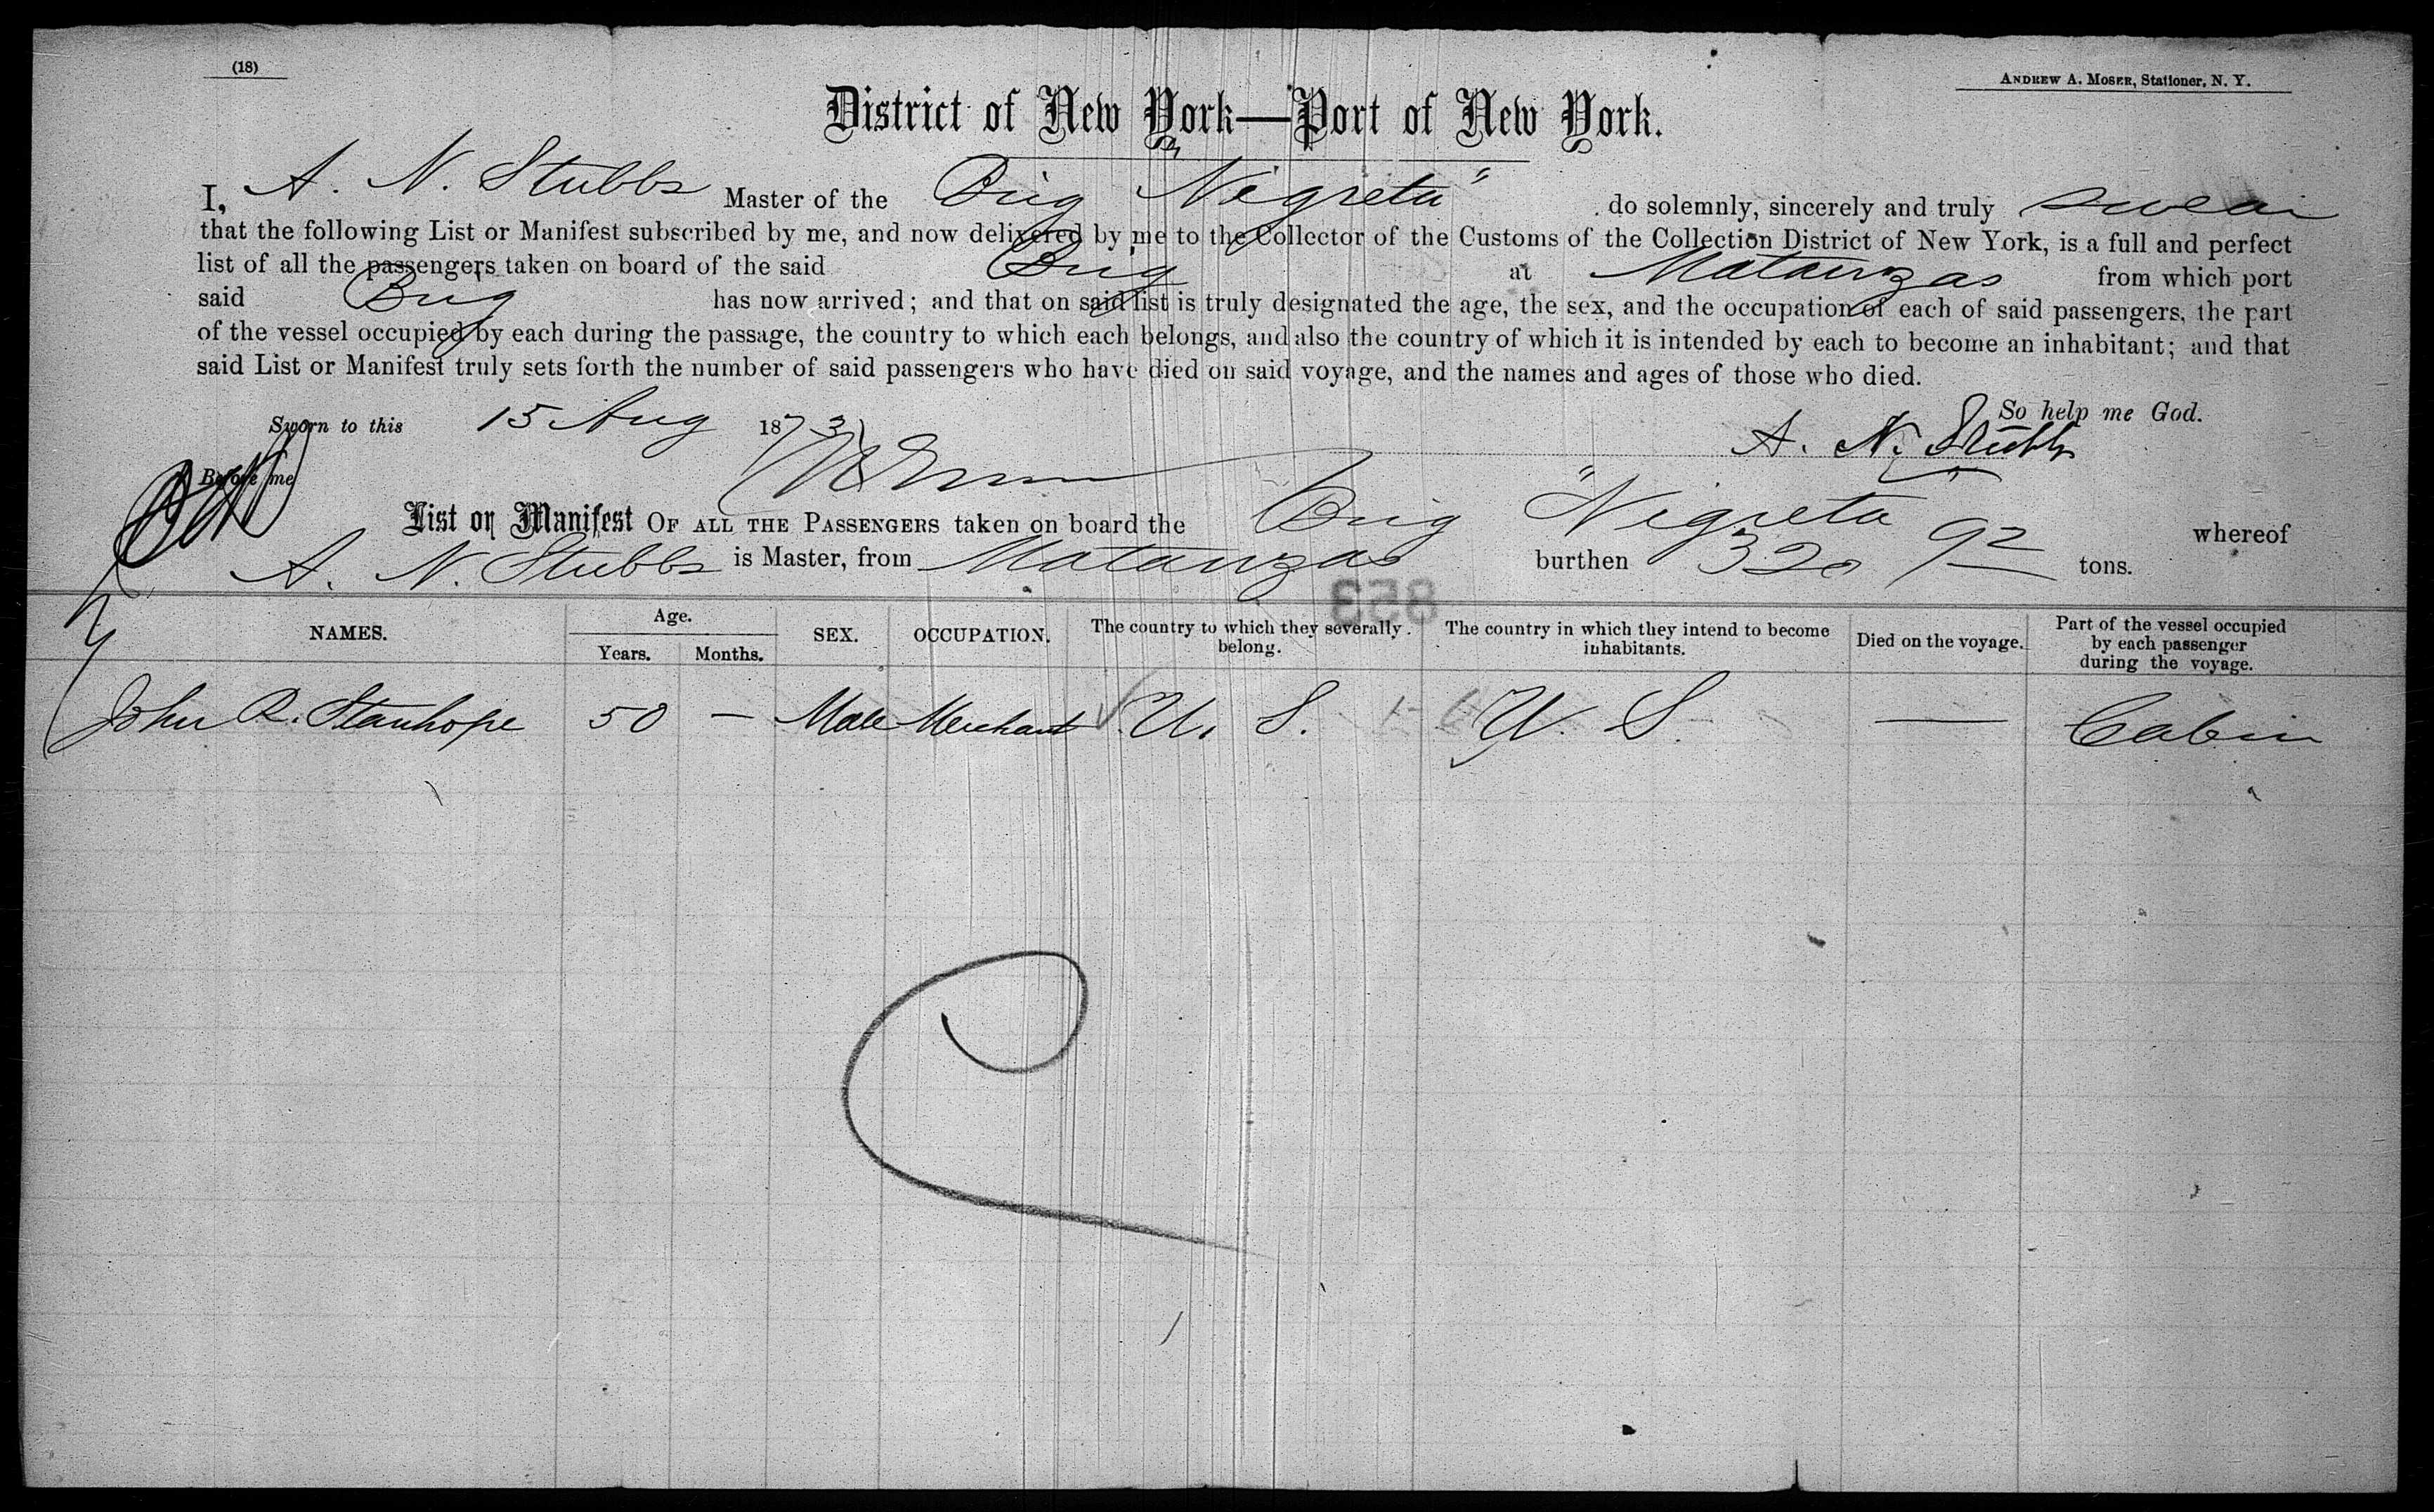 (18)
ANDREW A. MOSER, Stationer, N. Y.
District of New York—Port of New York.
I, A. N. Stubbs Master of the Brig "Nigreta" do solemnly, sincerely and truly swear
that the following List or Manifest subscribed by me, and now delivered by me to the Collector of the Customs of the Collection District of New York, is a full and perfect
list of all the passengers taken on board of the said Brig at Matanzas from which port
said Brig has now arrived; and that on said list is truly designated the age, the sex, and the occupation of each of said passengers, the part
of the vessel occupied by each during the passage, the country to which each belongs, and also the country of which it is intended by each to become an inhabitant; and that
said List or Manifest truly sets forth the number of said passengers who have died on said voyage, and the names and ages of those who died.
So help me God.
Sworn to this 15 Aug 1873
A. N. Stubbs
Before me
List or Manifest OF ALL THE PASSENGERS taken on board the Brig "Nigreta" whereof
A. N. Stubbs is Master, from Matanzas burthen 320 92 tons.
853
NAMES. Age. Years. Months. SEX. OCCUPATION. The country to which they severally belong. The country in which they intend to become inhabitants. Died on the voyage. Part of the vessel occupied by each passenger during the voyage.
John R. Stanhope 50 — Male Merchant U. S. U. S. — Cabin